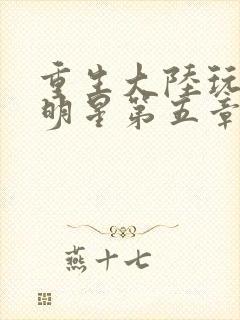 重生大陸玩
明星第五章
燕十七